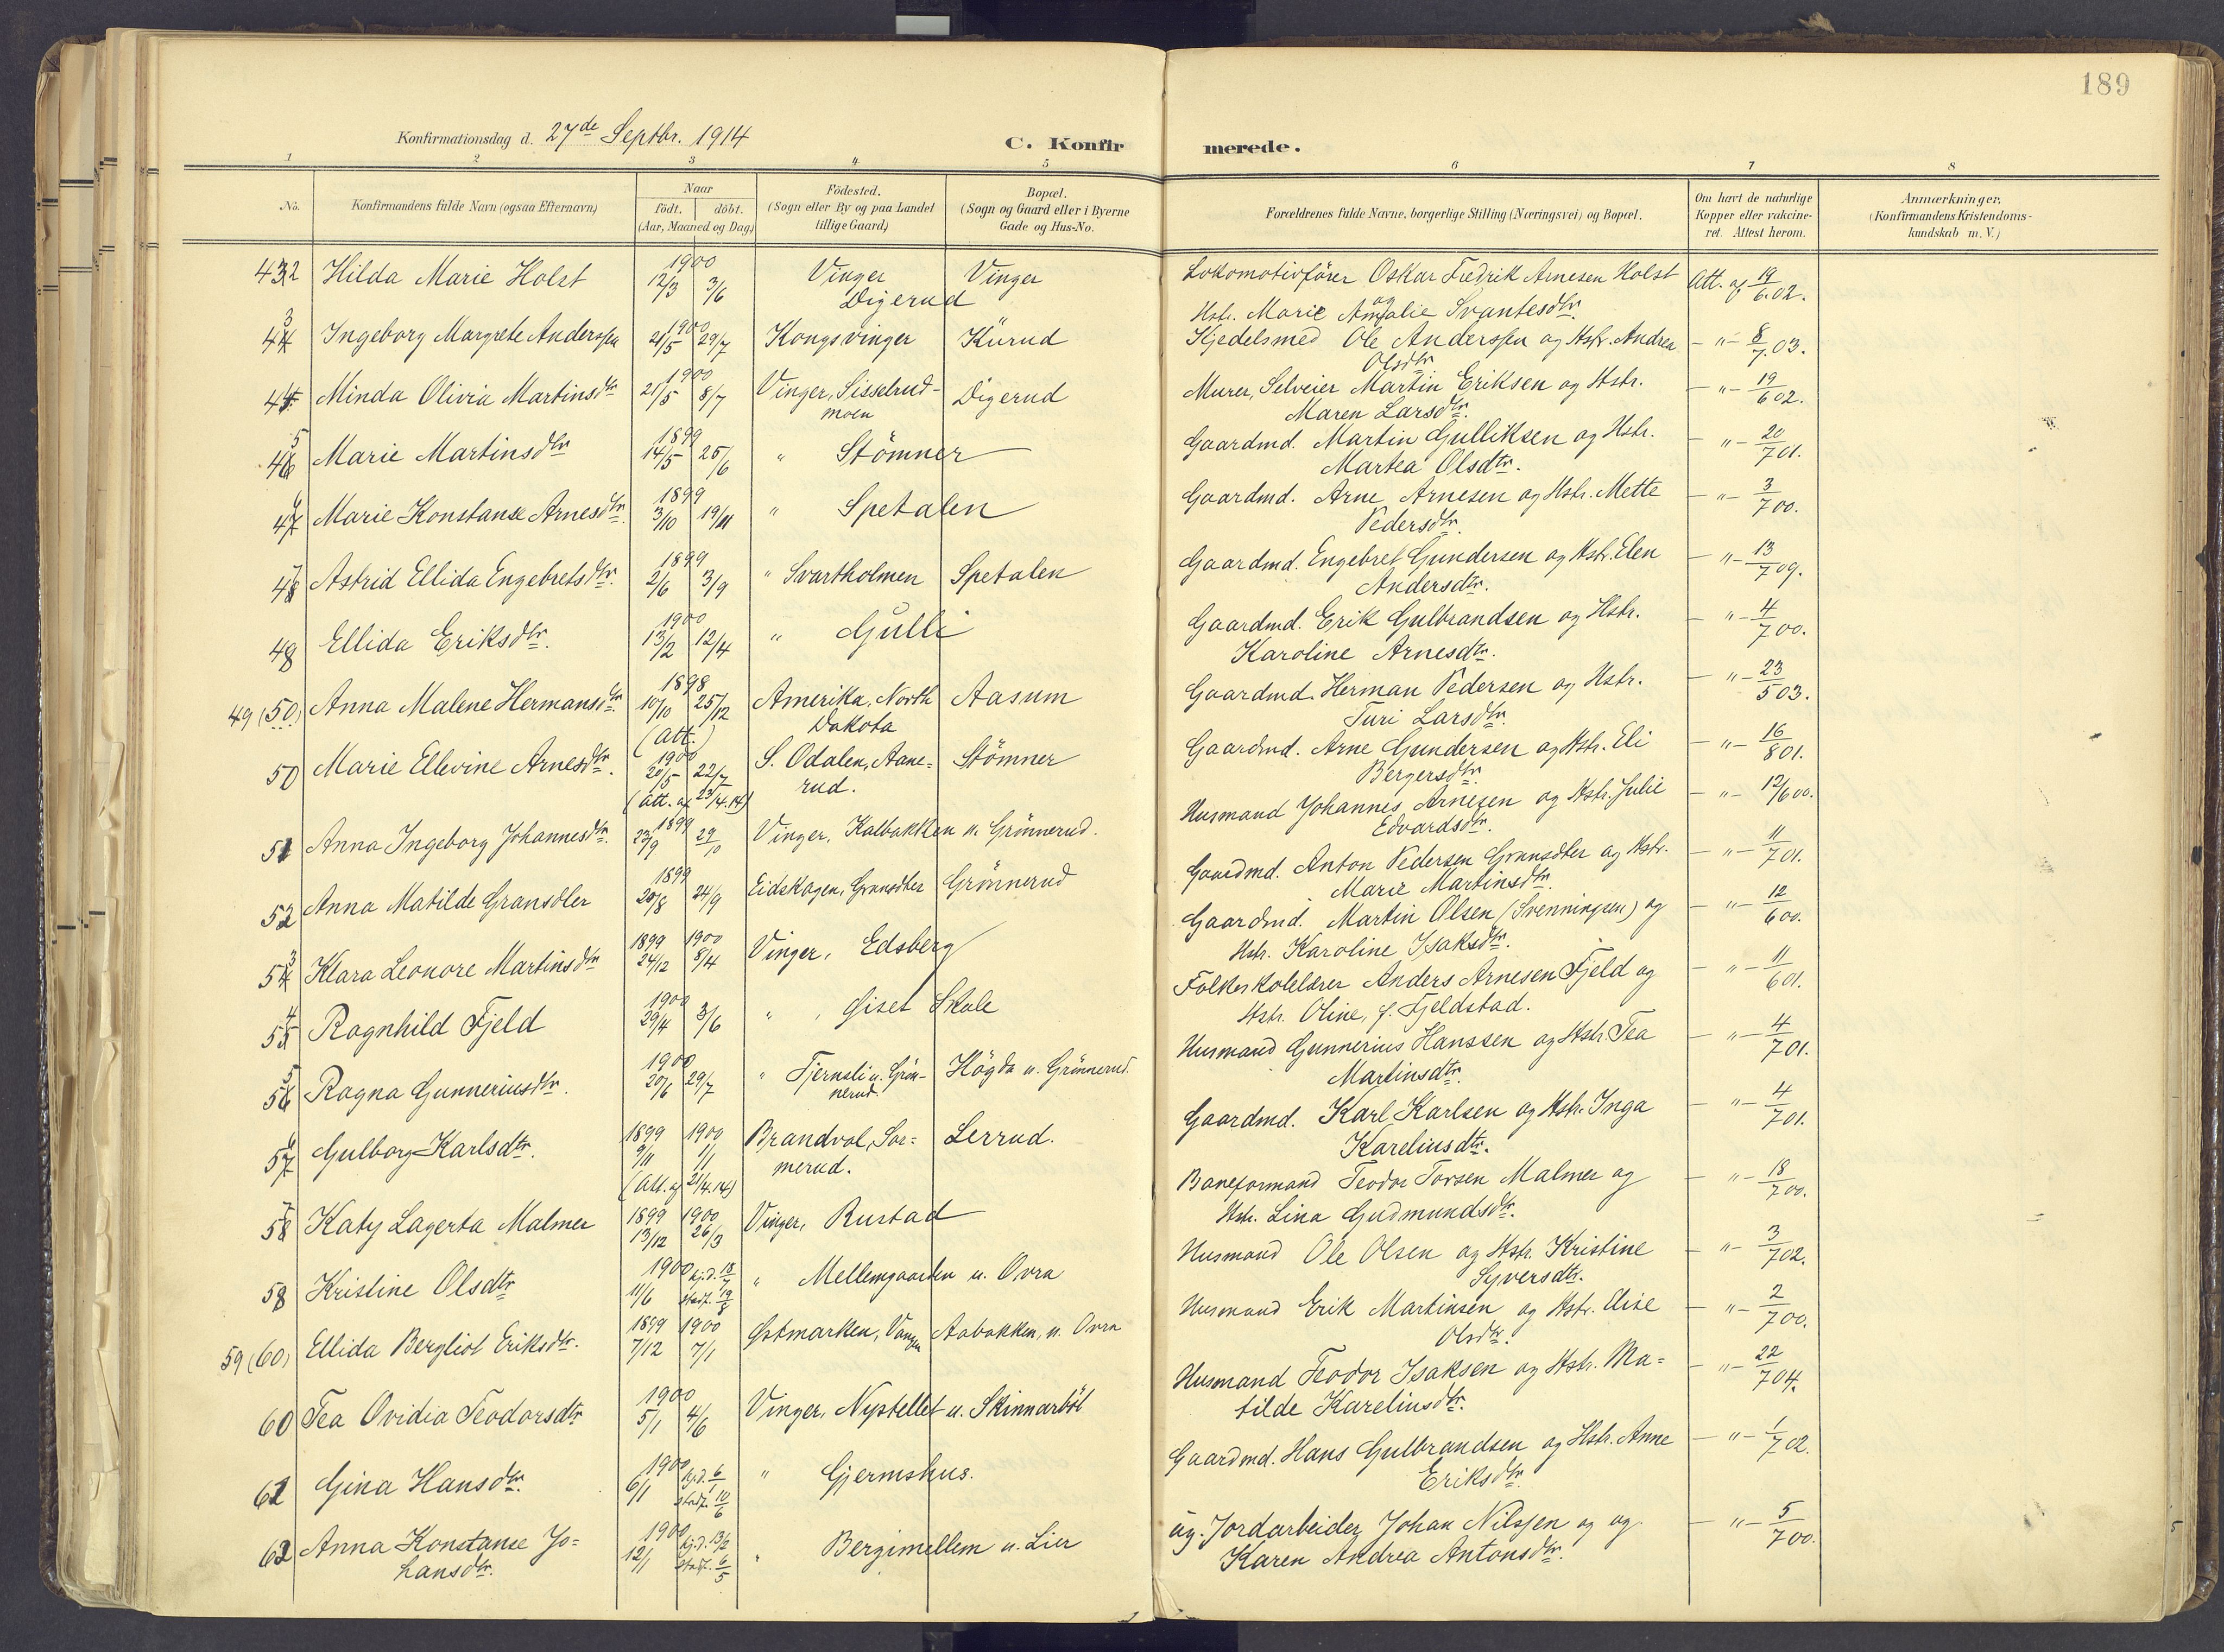 189
Konfirmationsdag d. 27de Septbr. 1914
C. Konfir merede.
1 2 3 4 5 6 7 8
No.
Konfirmandens fulde Navn (ogsaa Efternavn)
Naar
födt. döbt.
(Aar, Maaned og Dag)
Födested.
(Sogn eller By og paa Landet
tillige Gaard)
Bopæl.
(Sogn og Gaard eller i Byerne
Gade og Hus-No.
Forældrenes fulde Navne, borgerlige Stilling (Næringsvei) og Bopæl.
Om havt de naturlige
Kopper eller vakcine-
ret. Attest herom.
Anmærkninger,
(Konfirmandens Kristendoms-
kundskab m. V.)
432 Hilda Marie Holst 1900 12/3 3/6 Vinger Digerud Vinger Lokomotivförer Oskar Fredrik Arnesen Holst Att. af 19/6.02.
og Hstr. Marie Amalie Svantesdtr.
43 Ingeborg Margrete Anderssen 1900 21/5 29/7 Kongsvinger Kurud Kjedelsmed Ole Anderssen og Hstr. Andrea -"- 8/7.03.
Olsdtr.
44 Minda Olivia Martinsdtr 1900 21/5 8/7 Vinger, Sisselrud- Digerud Murer, Selveier Martin Eriksen og Hstr. -"- 19/602.
moen Maren Larsdtr.
45 Marie Martinsdtr 1899 14/5 25/6 " Stömner Gaardmd. Martin Gulliksen og Hstr. -"- 20/701.
Martea Olsdtr.
46 Marie Konstanse Arnesdtr. 1899 3/10 19/11 " Spetalen Gaardmd. Arne Arnesen og Hstr. Mette -"- 3/700.
Pedersdtr.
47 Astrid Ellida Engebretsdtr. 1899 2/6 3/9 " Svartholmen Spetalen Gaardmd. Engebret Gundersen og Hstr. Elen -"- 13/709.
Andersdtr.
48 Ellida Eriksdtr. 1900 13/2 12/4 " Gulli Gaardmd. Erik Gulbrandsen og Hstr. -"- 4/700.
Karoline Arnesdtr.
49 (50) Anna Malene Hermansdtr 1898 10/10 25/12 Amerika, North Aasum Gaardmd. Herman Pedersen og Hstr. -"- 23/503.
(Att.) Dakota Turi Larsdtr.
50 Marie Ellevine Arnesdtr. 1900 20/5 22/7 S. Odalen, Aane= Stömner Gaardmd. Arne Gundersen og Hstr. Eli -"- 16/801.
(Att. af 23/4.14) rud. Bergersdtr.
51 Anna Ingeborg Johannesdtr. 1899 23/9 29/10 Vinger, Kalbakken u. Grönnerud. Husmand Johannes Arnesen og Hstr. Julie -"- 12/600.
Edvardsdtr.
52 Anna Matilde Gransdler 1899 20/8 24/9 Eidskogen, Gransdler Grönnerud Gaardmd. Anton Pedersen Gransdler og Hstr. -"- 11/701.
Marie Martinsdtr.
53 Klara Leonore Martinsdtr 1899 24/12 1900 8/4 Vinger, Edsberg Gaardmd. Martin Olsen (Svenningsen) og -"- 12/600.
Hstr. Karoline Isaksdtr.
54 Ragnhild Fjeld 1900 29/4 3/6 " , Giset Skole Folkeskolelærer Anders Arnesen Fjeld og -"- 11/601.
Hstr. Oline, f. Fjeldstad.
55 Ragna Gunneriusdtr. 1900 20/6 29/7 " Tjernsli u. Grön- Högda u. Grönnerud. Husmand Gunnerius Hanssen og Hstr. Tea -"- 4/701.
nerud. Martinsdtr.
56 Gulborg Karlsdtr. 1899 9/11 1900 1/1 Brandval, Sor= Lerrud. Gaardmd. Karl Karlsen og Hstr. Inga -"- 4/701.
(Att. af 21/4.14) merud. Kareliusdtr.
57 Katy Lagerta Malmer 1899 13/12 1900 26/3 Vinger, Rustad Baneformand Teodor Torsen Malmer og -"- 18/700.
Hstr. Lina Gudmundsdtr.
58 Kristine Olsdtr 1900 11/6 hj.d. 18/7 stadf. 19/8 " Mellemgaarden u. Ovra Husmand Ole Olsen og Hstr. Kristine -"- 3/702.
Syversdtr.
59 (60) Ellida Bergliot Eriksdtr. 1899 7/12 1900 7/1 Østmarken, Aabakken, u. Ovra Husmand Erik Martinsen og Hstr. Elise -"- 2/700.
Olsdtr.
60 Tea Ovidia Teodorsdtr 1900 5/1 4/6 Vinger, Nystellet u. Skinnarböl Husmand Teodor Isaksen og Hstr. Ma= -"- 22/704.
tilde Kareliusdtr.
61 Gina Hansdtr. 1900 6/1 hj.d. 6/1 stadf. 10/6 " Gjermshus. Gaardmd. Hans Gulbrandsen og Hstr. Anne -"- 1/702.
Eriksdtr.
62 Anna Konstanse Jo= 1900 12/1 hj.d. 13/2 stadf. 6/5 " Bergimellem u. Lier ug. Jordarbeider Johan Nilssen og ug. -"- 5/700.
hansdtr. Karen Andrea Antonsdtr.